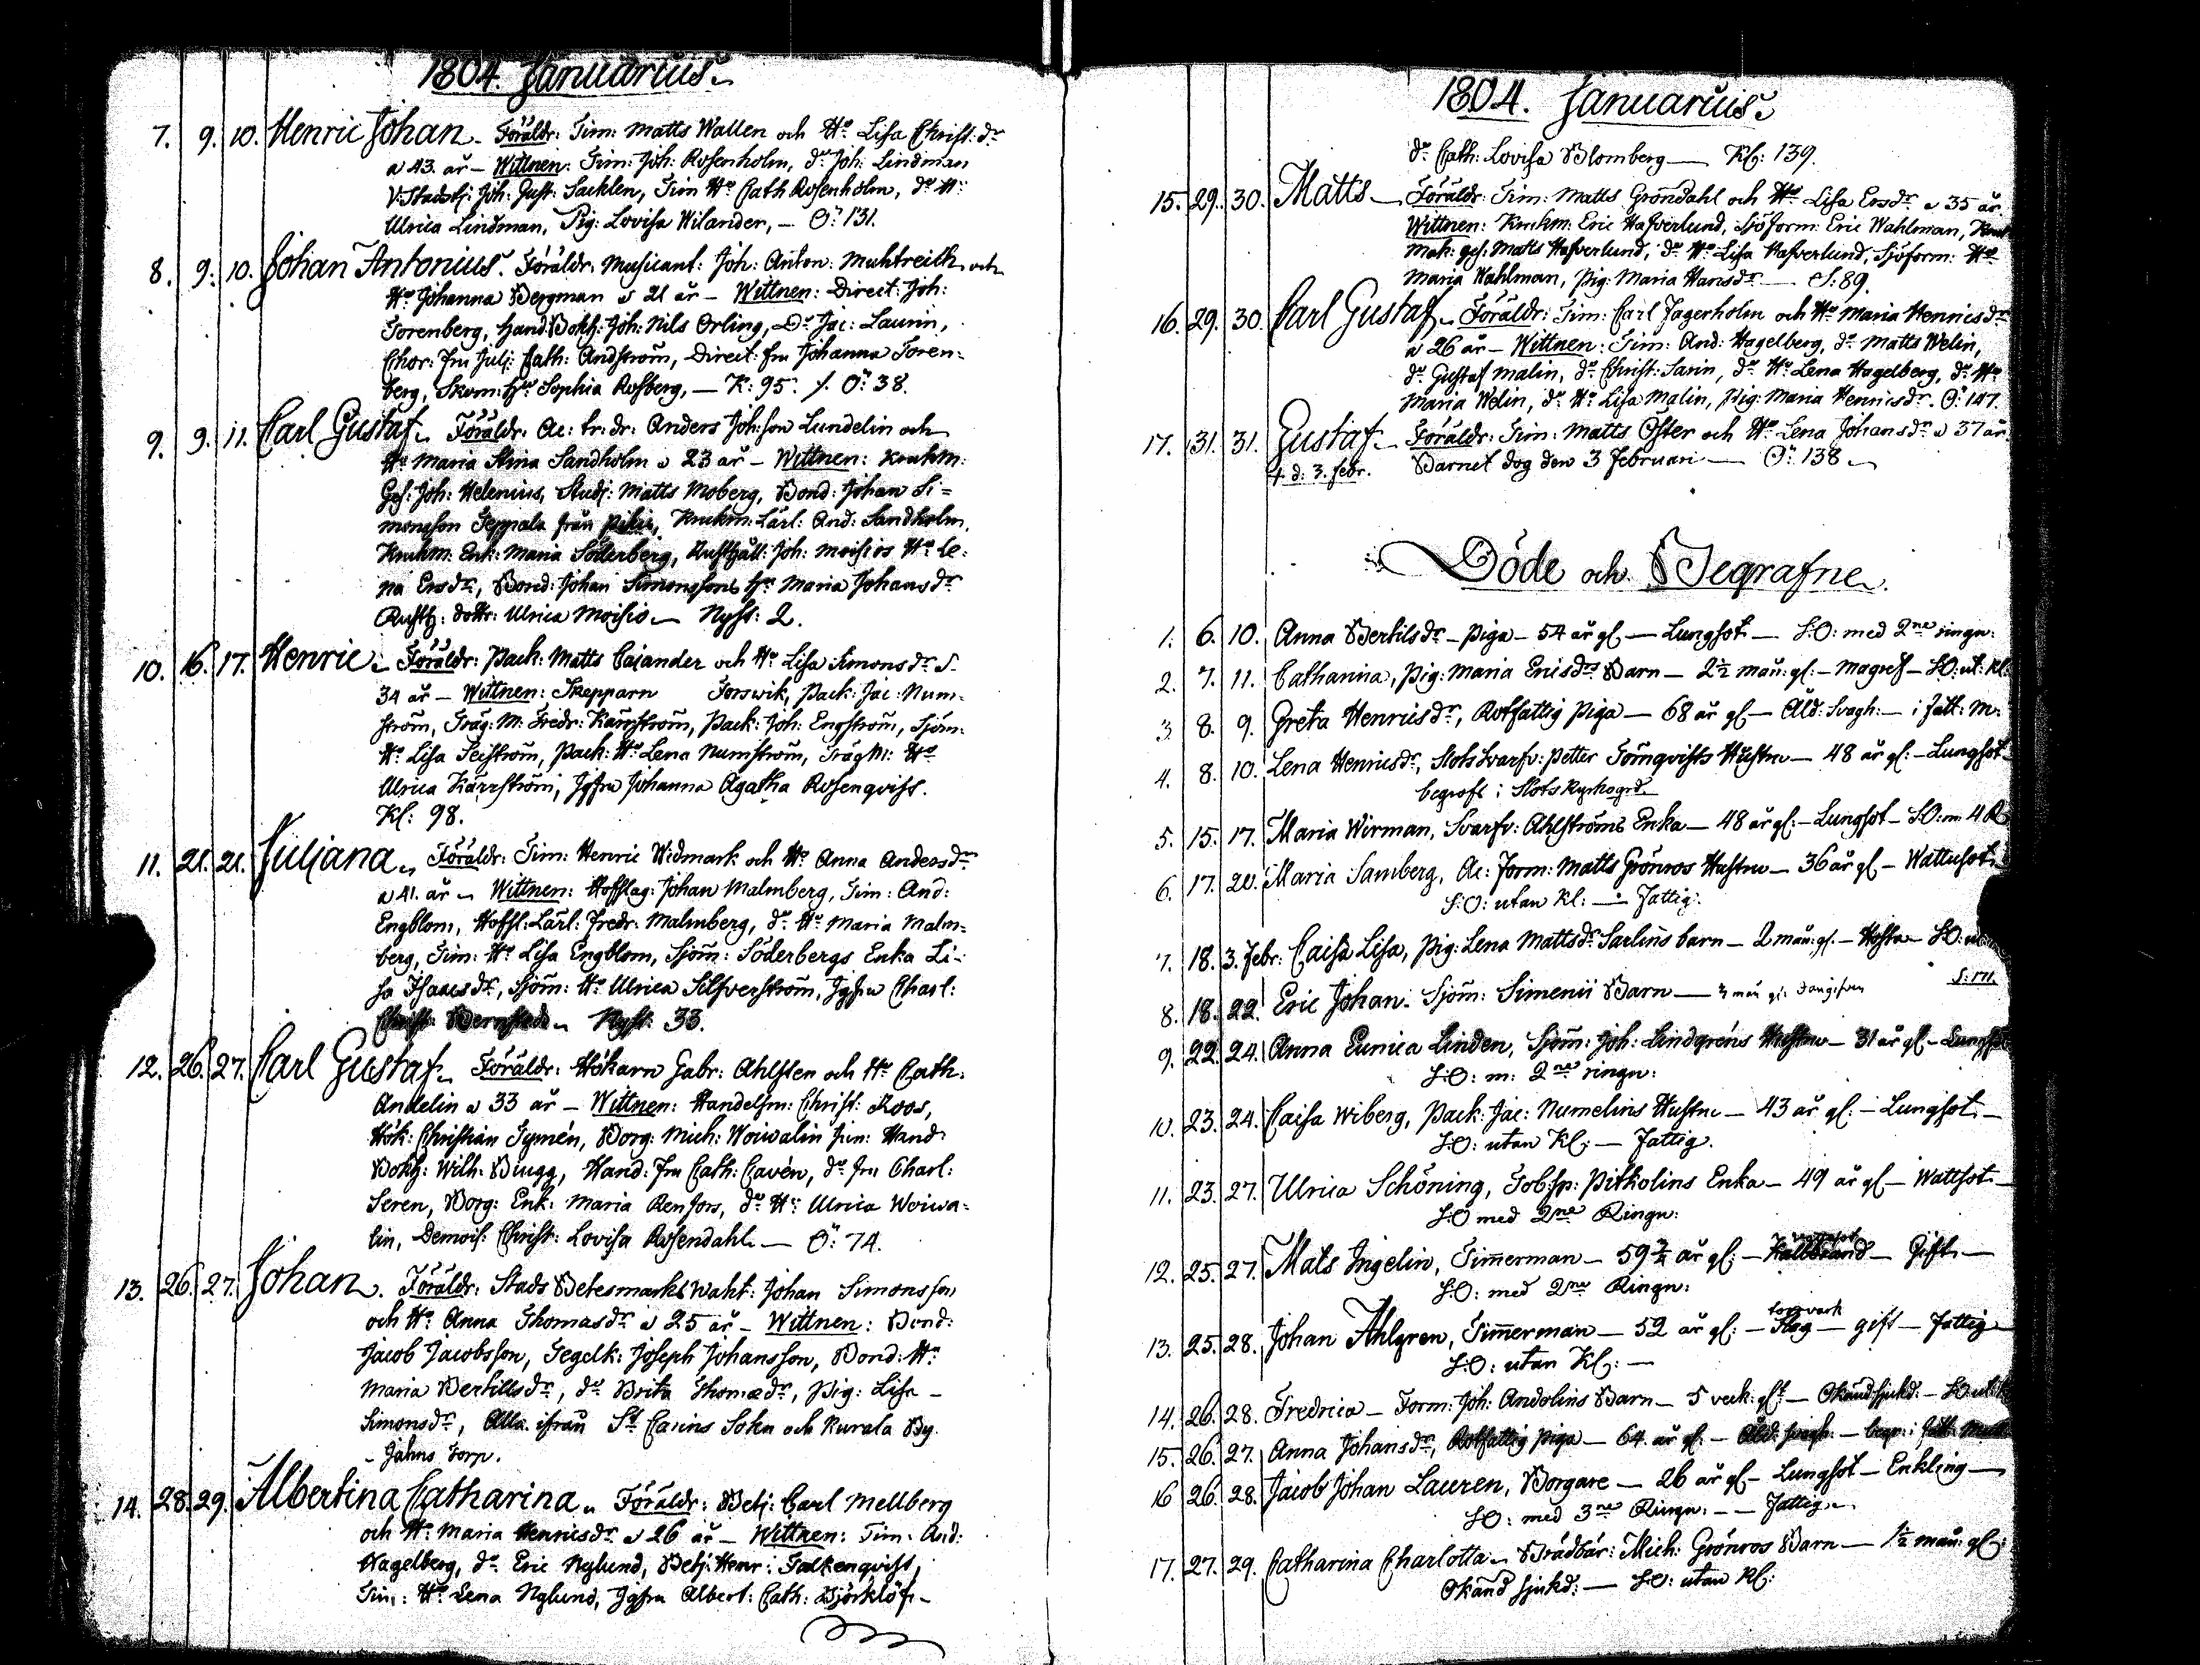 1804. Januarius.
7. 9. 10. Henric Johan. Föräldr: Tim: Matts Wallen och Ho Lisa Christ:dr
a 43. år – Wittnen: Tim: Joh: Rosenholm, do Joh: Lindman
V:Stadsfj: Joh: Gust: Sacklen, Tim Ho Cath Rosenholm, do Ho
Ulrica Lindman, Pig: Lovisa Wilander, – Ö: 131.
8. 9. 10. Johan Antonius. Föräldr: Musicant: Joh: Anton: Muhtreich och
Ho Johanna Bergman a 21 år – Wittnen: Direct: Joh:
Torenberg, Hand Bokh: Joh: Nils Orling, Do Jac: Laurin,
Chor: fru Julj: Cath: Andström, Direct: fru Johanna Toren-
berg, Skom: Hu Sophia Rosberg, – K: 95. /. Ö: 38.
9. 9. 11. Carl Gustaf. Föräldr: Ac: tr: dr: Anders Joh:son Lundelin och
Ho Maria Stina Sandholm a 23 år – Wittnen: Krukm:
Ges: Joh: Helenius, Studj: Matts Moberg, Bond: Johan Si=
monsson Seppala från Pikis, Krukm: Lärl: And: Sandholm,
Krukm: Enk: Maria Söderberg, Rusthåll: Joh: Moisios Ho Le:
na Ersdr, Bond: Johan Simonssons Hu Maria Johansdr
Rusth: dottr: Ulrica Moisio – Nyst: 2.
10. 16. 17. Henric – Föräldr: Pack: Matts Caiander och Ho Lisa Simonsdr a
34 år – Wittnen: Skepparn Forswik, Pack: Jac: Num-
ström, Träg: M: Fredr: Kärrström, Pack: Joh: Engström, Sjöm:
Ho Lisa Seiström, Pack: Ho Lena Numström, Träg M: Ho
Ulrica Kärrström, Jgfru Johanna Agatha Rosenqvist.
Kl: 98.
11. 21. 21. Juljana. Föräldr: Tim: Henric Widmark och Ho Anna Andersdr
a 41. år – Wittnen: Hofslag: Johan Malmberg, Tim: And:
Engblom, Hofsl: Lärl: Fredr: Malmberg, do Ho Maria Malm-
berg, Tim: Ho Lisa Engblom, Sjöm: Söderbergs Enka Li-
sa Isaacsdr, Sjöm: Ho Ulrica Silfverström, Jgfru Charl:
Christ: Nyst: 33.
12. 26. 27. Carl Gustaf. Föräldr: Hökarn Gabr: Ahlsten och Ho Cath:
Andelin a 33 år – Wittnen: Handelsm: Christ: Roos,
Hök: Christian Tymén, Borg: Mich: Woiwalin Jun: Hand
Bokh: Wilh: Bingg, Hand: fru Cath: Cavén, do fru Charl:
Seren, Borg: Enk: Maria Renfors, do Ho Ulrica Woiwa-
lin, Demois: Christ: Lovisa Rosendahl – Ö: 74.
13. 26. 27. Johan. Föräldr: Stads Betesmarks Waht: Johan Simonsson
och Ho Anna Thomasdr a 25 år – Wittnen: Bond:
Jacob Jacobsson, Tegelk: Joseph Johansson, Bond: Ho
Maria Bertillsdr, do Brita Thomædr, Pig: Lisa –
Simonsdr, Alla ifrån St Carins Sokn och Kurala By.
– Jahns Torp.
14. 28. 29. Albertina Catharina. Föräldr: Betj: Carl Mellberg
och Ho Maria Henricsdr a 26 år – Wittnen: Tim: And:
Hagelberg, do Eric Nylund, Betj: Henr: Falkenqvist,
Tim: Ho Lena Nylund, Jgfru Albert: Cath: Björklöf –
1804. Januarius.
do Cath: Lovisa Blomberg – Kl: 139.
15. 29. 30. Matts – Föräldr: Tim: Matts Gröndahl och Ho Lisa Ersdr a 35 år
Wittnen: Krukm: Eric Hafverlund, Sjöform: Eric Wahlman, Kruk
mak: ges: Matts Hafverlund, do Ho Lisa Hafverlund, Sjöform: Ho
Maria Wahlman, Pig: Maria Hansdr – S: 89.
16. 29. 30. Carl Gustaf – Föräldr: Tim: Carl Jagerholm och Ho Maria Henricsdr
a 26 år – Wittnen: Tim: And: Hagelberg, do Matts Welin,
do Gustaf Malin, do Christ: Sarin, do Ho Lena Hagelberg, do Ho
Maria Welin, do Ho Lisa Malin, Pig: Maria Henricsdr. Ö: 147.
17. 31. 31. Gustaf – Föräldr: Tim: Matts Öster och Ho Lena Johansdr a 37 år
† d: 3. febr. Barnet dog den 3 Februari – Ö: 138 –
Döde och Begrafne.
1. 6. 10. Anna Bertilsdr – Piga – 54 år gl – Lungsot – S:O: med 2ne ringn:
2. 7. 11. Catharina, Pig: Maria Ericsdrs Barn – 2½ mån: gl: – Magref – S:O: ut: Kl:
3. 8. 9. Greta Henricsdr, Rotfattig Piga – 68 år gl – Åld: Svagh: – i Fatt: M:
4. 8. 10. Lena Henricsdr, Slots Svarfv: Petter Törnqvists Hustru – 48 år gl: – Lungsot –
begrofs i Slots Kyrkogrd
5. 15. 17. Maria Wirman, Svarfv: Ahlströms Enka – 48 år gl: – Lungsot – S:O: m: 4 R
6. 17. 20. Maria Samberg, Ac: Form: Matts Grönroos Hustru – 36 år gl – Wattusot:
S:O: utan Kl: – Fattig.
7. 18. 3. Febr: Caisa Lisa, Pig: Lena Mattsdr Sarlins barn – 2 mån: gl. – Hosta – S:O: ut
8. 18. 22. Eric Johan. Sjöm: Simenii Barn – ¾ mån gl: S: m.
9. 22. 24. Anna Eunica Linden, Sjöm: Joh: Lindgréns Hustru – 31 år gl – Lungsot
S:O: m: 2ne ringn:
10. 23. 24. Caisa Wiberg, Pack: Jac: Numelins Hustru – 43 år gl: – Lungsot –
S:O: utan Kl: – Fattig.
11. 23. 27. Ulrica Schöning, Tob:sp: Pitkolins Enka – 49 år gl – Wattsot –
S:O med 2ne Ringn:
12. 25. 27. Mats Ingelin, Timmerman – 59¾ år gl: – Kallbrand – Gift –
S:O: med 2ne Ringn:
13. 25. 28. Johan Ahlgren, Timmerman – 52 år gl: – Slag – gift – Fattig –
S:O: utan Kl: –
14. 26. 28. Fredrica – Form: Joh: Andolins Barn – 5 veck: gl: – Okänd sjukd: – S:O ut: K
15. 26. 27. Anna Johansdr, Rotfattig Piga – 64. år gl: – Åld: svagh: – begr: i Fatt: Mull
16 26. 28. Jacob Johan Lauren, Borgare – 26 år gl – Lungsot – Enkling –
S:O: med 3ne Ringn: – – Fattig –
17. 27. 29. Catharina Charlotta – Brädbär: Mich: Grönroos Barn – 1½ mån: gl:
Okänd sjukd: – S:O: utan Kl: